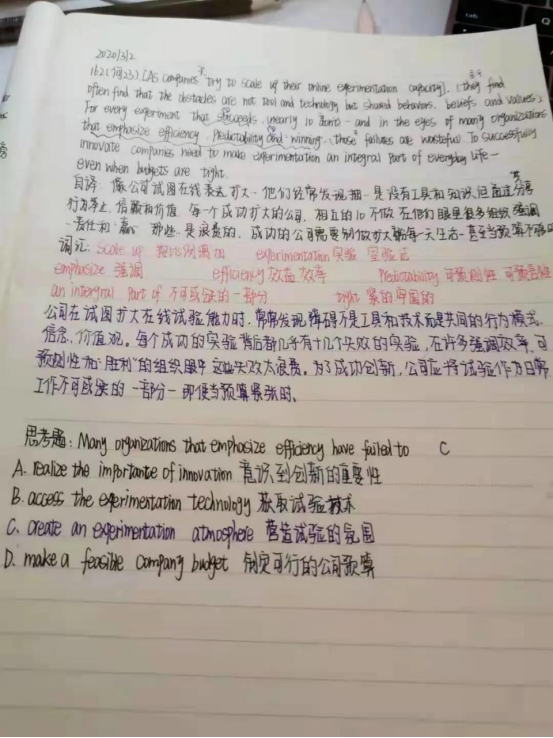 2020/3/2
162(问23) [As companies try to scale up their online experimentation capacity], (they find
often find that the obstacles are not tool and technology but shared behaviors, beliefs and values,
For every experiment that succeeds, nearly 10 don't - and in the eyes of many organizations
that emphasize efficiency, Predictability and winning, those failures are wasteful. To successfully
innovate companies need to make experimentation an integral part of everyday life -
even when budgets are tight.
自译: 像公司试图在线表达扩大, 他们经常发现
行为举止, 信赖和价值, 每一个成功扩大的公司, 相互的10不做在他们眼里很多组织强调
是浪费的, 成功的公司需要
词汇: Scale up experimentation 实验
emphasize 强调 efficiency 效益 效率 Predictability 可预测性
an intergral part of 不可或缺的一部分 tight 紧的
公司在试图扩大在线试验能力时, 常常发现障碍不是工具和技术而是共同的行为模式,
信念、价值观。每个成功的实验背后都几乎有十几个失效的实验, 在许多强调效率、可
预测性和"胜利"的组织眼中 这些失效太浪费。为了成功创新, 公司应将试验作为日常
工作不可或缺的一部分 - 即便当预算紧张时。
思考题: Many organizations that emphasize efficiency have failed to C
A. realize the importante of innovation 意识到创新的重要性
B. access the experimentation technology 获取试验技术
C. create an experimentation atmosphere 营造试验的氛围
D. make a feasible company budget 制定可行的公司预算